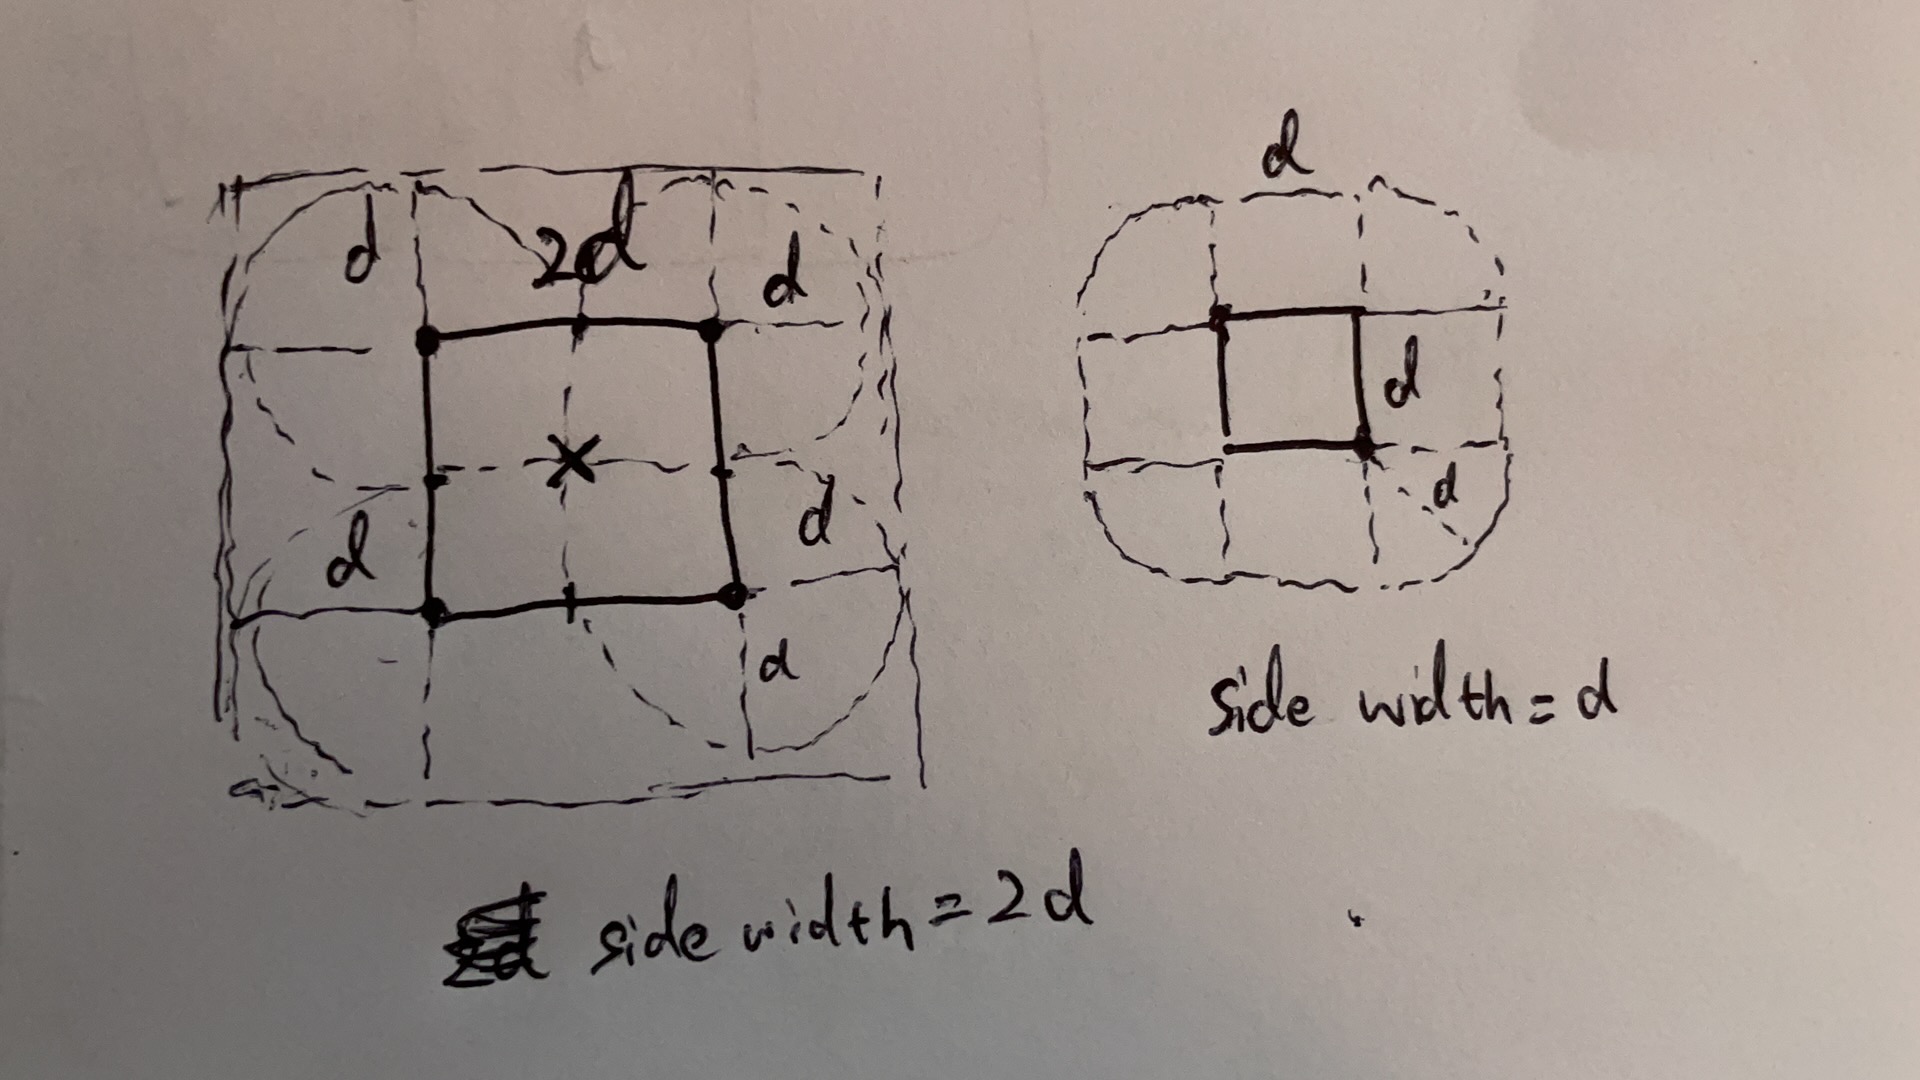 d
2d
d
d
d
d
side width = 2d
d
d
d
side width = d